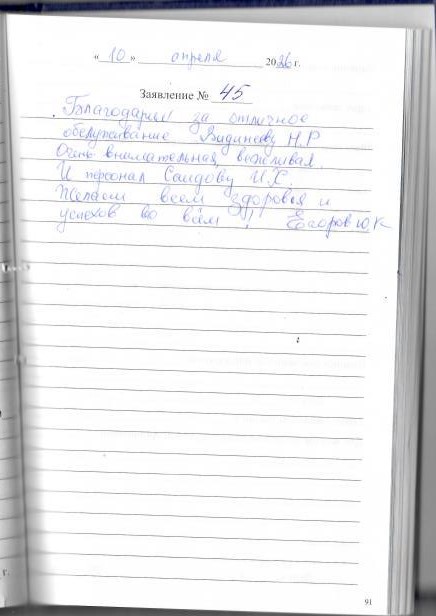 « 10 » апреля 2026 г.
Заявление № 45
Благодарим за отличное
обслуживание Видинееву Н.Р
Очень внимательная, вежливая.
И персонал Саидову И.Х.
Желаем всем здоровья и
успехов во всём! Егоров Ю.К
г.
91